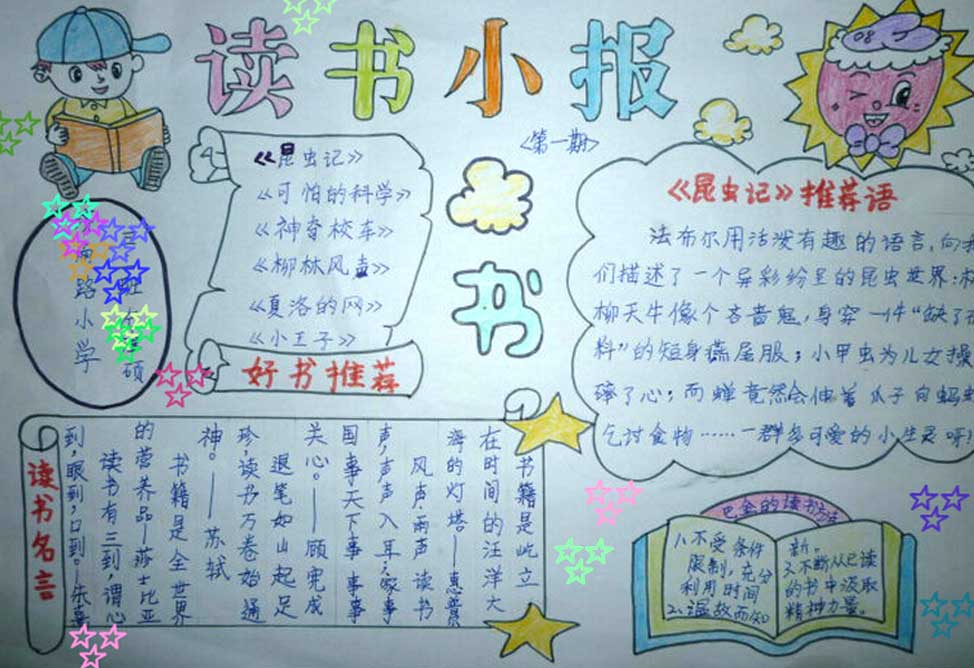 读书小报
<第一期>
《昆虫记》
《可怕的科学》
《神奇校车》
《柳林风声》
《夏洛的网》
《小王子》
好书推荐
路小学
硕
书
08
《昆虫记》推荐语
法布尔用活泼有趣的语言,向
们描述了一个异彩纷呈的昆虫世界:
柳天牛像个吝啬鬼,身穿一件“缺了
料”的短身燕尾服;小甲虫为儿女操
碎了心;而蝉竟然会伸着爪子向蚂
乞讨食物……一群多可爱的小生灵呀
读书名言
书籍是屹立
在时间的汪洋大
海的灯塔。——惠普
风声雨声读书
声,声声入耳;家事
国事天下事事事
关心。——顾宪成
退笔如山起足
珍,读书万卷始通
神。——苏轼
书籍是全世界
的营养品—莎士比亚
读书有三到,谓心
到,眼到,口到。—朱熹
巴金的读书方法
1、不受条件
限制,充分
利用时间
2、温故而知
新。
3、不断从已读
的书中汲取
精神力量。